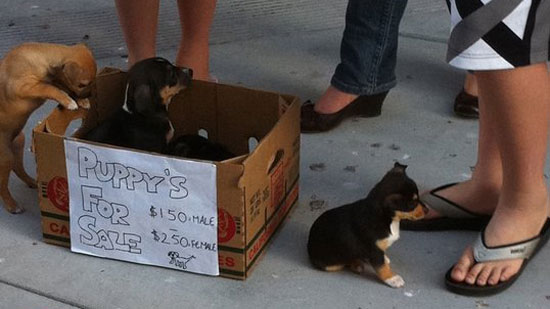 PUPPY'S
FOR $150. MALE
SALE $250. FEMALE
CA
ES